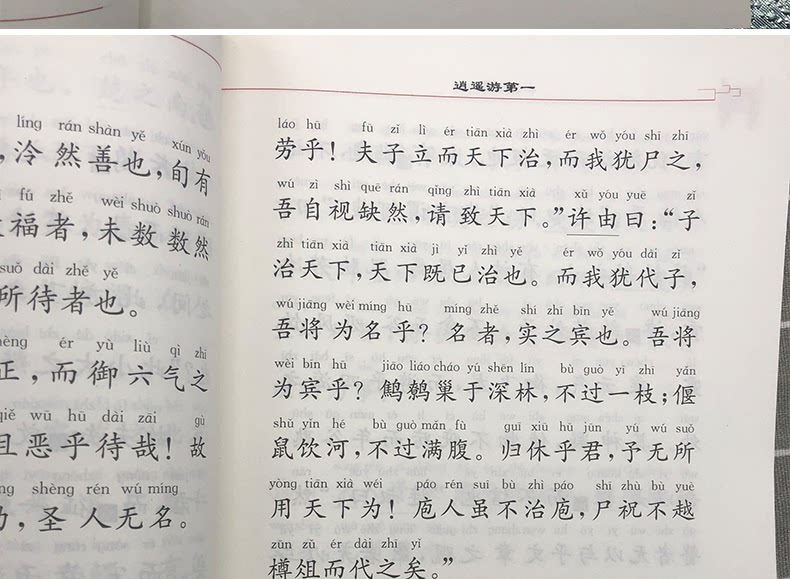 líng rán shàn yě xún yǒu
，泠然善也，旬有
fú zhě wèi shuò shuò rán
福者，未数数然
suǒ dài zhě yě
所待者也。
ér yù liù qì zhī
正，而御六气之
qiě wū hū dài zāi gù
且恶乎待哉！故
shèng rén wú míng
，圣人无名。
逍遥游第一
láo hū fū zǐ lì ér tiān xià zhì ér wǒ yóu shī zhī
劳乎！夫子立而天下治，而我犹尸之，
wú zì shì quē rán qǐng zhì tiān xià xǔ yóu yuē zǐ
吾自视缺然，请致天下。”许由曰：“子
zhì tiān xià tiān xià jì yǐ zhì yě ér wǒ yóu dài zǐ
治天下，天下既已治也。而我犹代子，
wú jiāng wèi míng hū míng zhě shí zhī bīn yě wú jiāng
吾将为名乎？名者，实之宾也。吾将
wèi bīn hū jiāo liáo cháo yú shēn lín bù guò yì zhī yǎn
为宾乎？鹪鹩巢于深林，不过一枝；偃
shǔ yǐn hé bù guò mǎn fù guī xiū hū jūn yú wú suǒ
鼠饮河，不过满腹。归休乎君，予无所
yòng tiān xià wéi páo rén suī bù zhì páo shī zhù bù yuè
用天下为！庖人虽不治庖，尸祝不越
zūn zǔ ér dài zhī yǐ
樽俎而代之矣。”